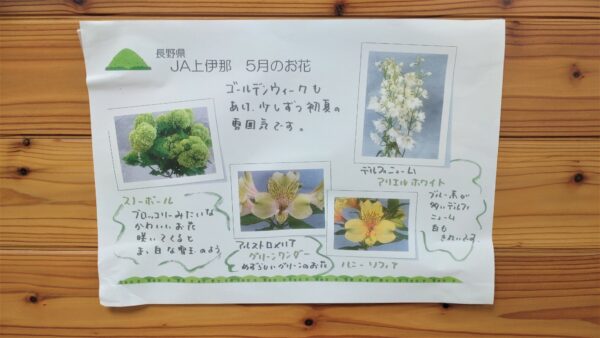 長野県
JA上伊那 5月のお花
ゴールデンウィークも
あり、少しずつ初夏の
雰囲気です。
スノーボール
ブロッコリーみたいな
かわいいお花
咲いてくると
まっ白な雪玉のよう
アルストロメリア
グリーンワンダー
めずらしいグリーンのお花
ハニーソフィア
デルフィニューム
アリエルホワイト
ブルー系が
多いデルフィ
ニューム
白も
きれいです